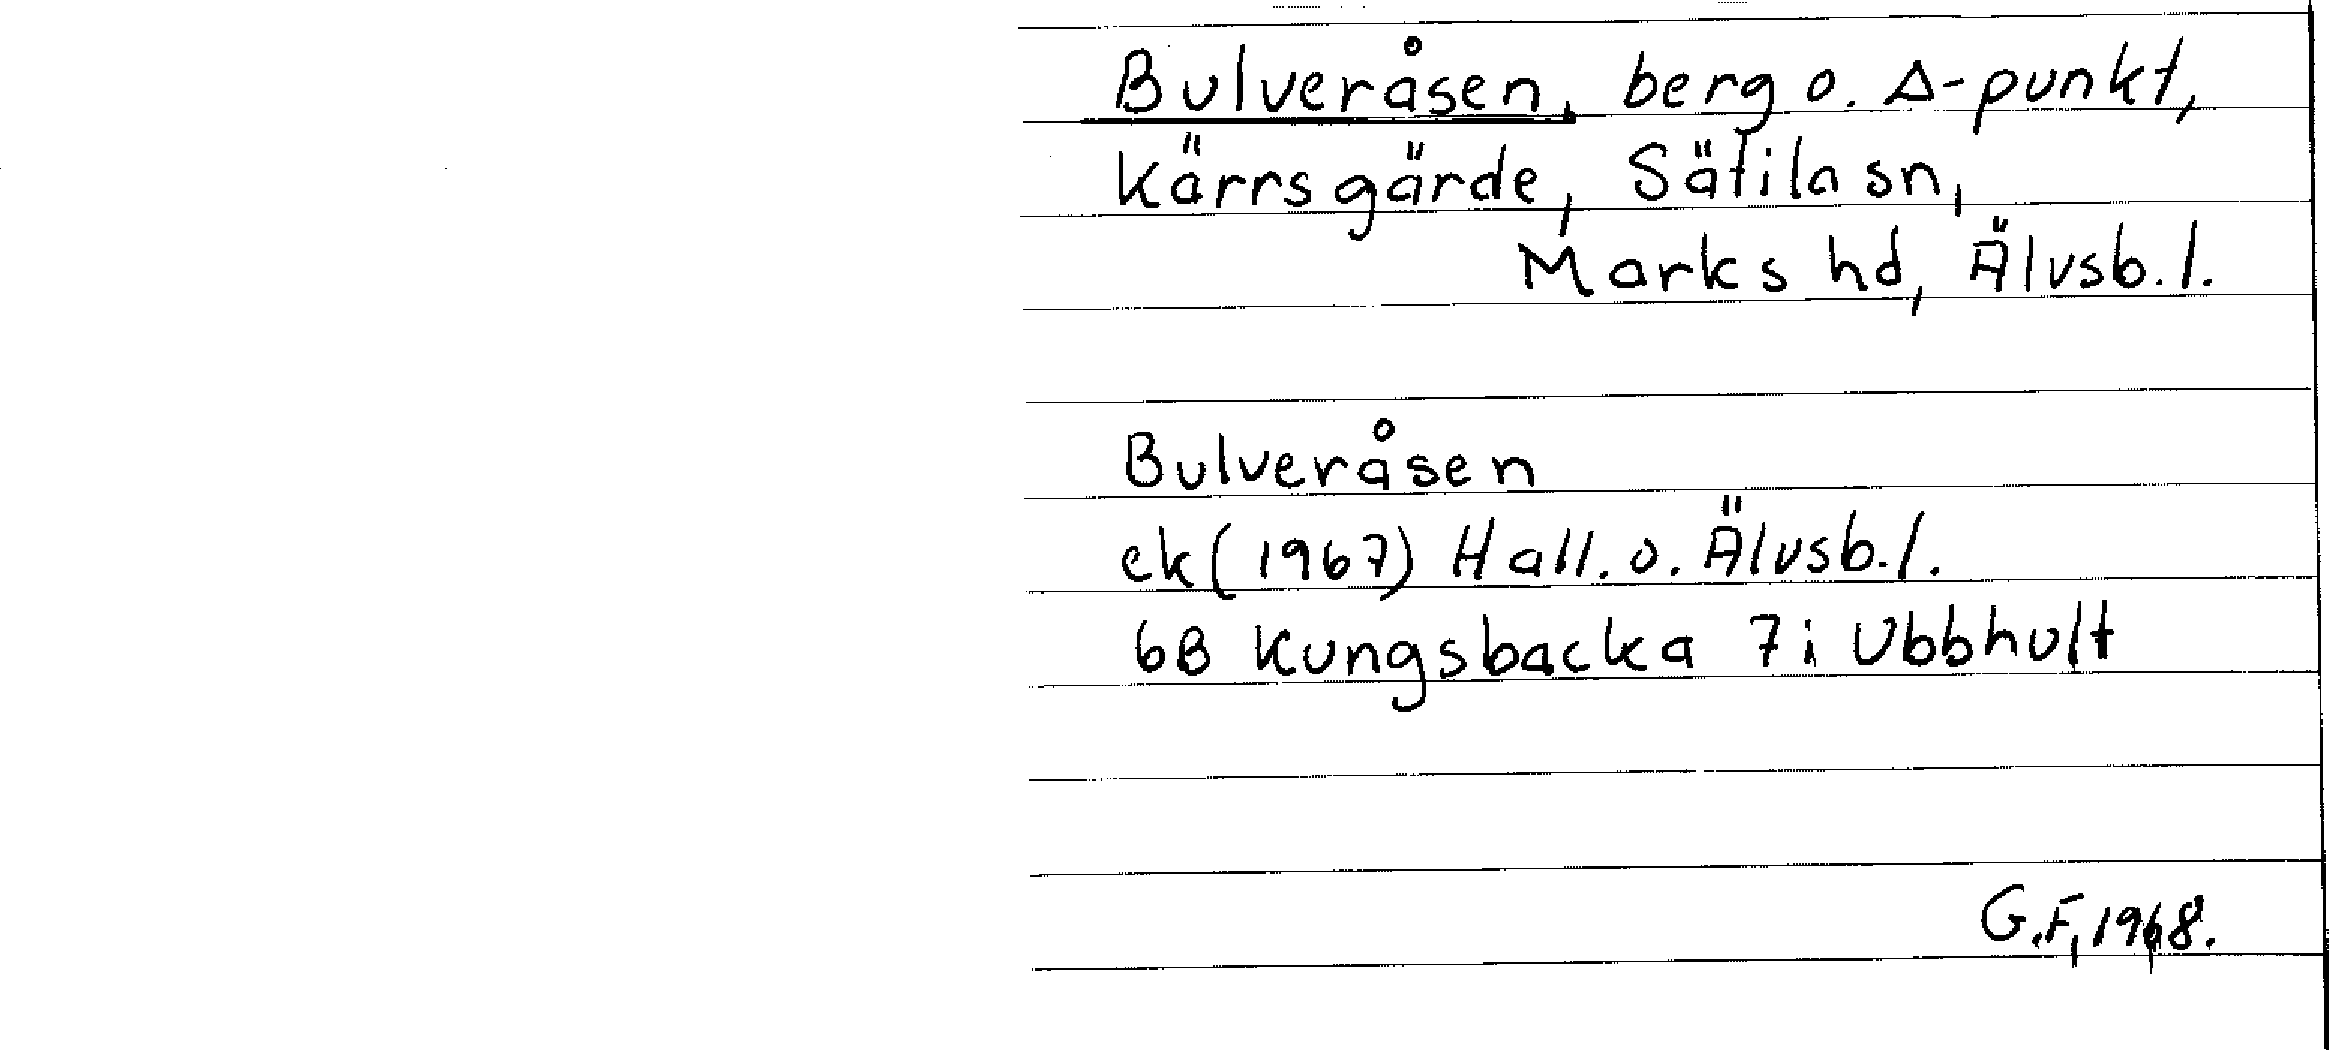 Bulveråsen, berg o. Δ-punkt,
Kärrsgärde, Sätila sn,
Marks hd, Älvsb. l.
Bulveråsen
ek (1967) Hall. o. Älvsb. l.
6B Kungsbacka 7i Ubbhult
G.F, 1968.